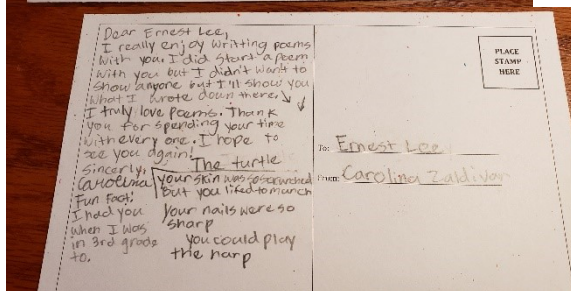 Dear Ernest Lee,
I really enjoy writting poems
with you. I did start a poem
with you but I didn't want to
show anyone but I'll show you
what I wrote down there. ↓ ↓
I truly love poems. Thank
you for spending your time
with every one. I hope to
see you again!
Sincerly,
Carolina
Fun Fact:
I had you
when I was
in 3rd grade
to.
The turtle
your skin was so scrunched
but you liked to munch
your nails were so
sharp
you could play
the harp
PLACE
STAMP
HERE
To: Ernest Lee
From: Carolina Zaldivar